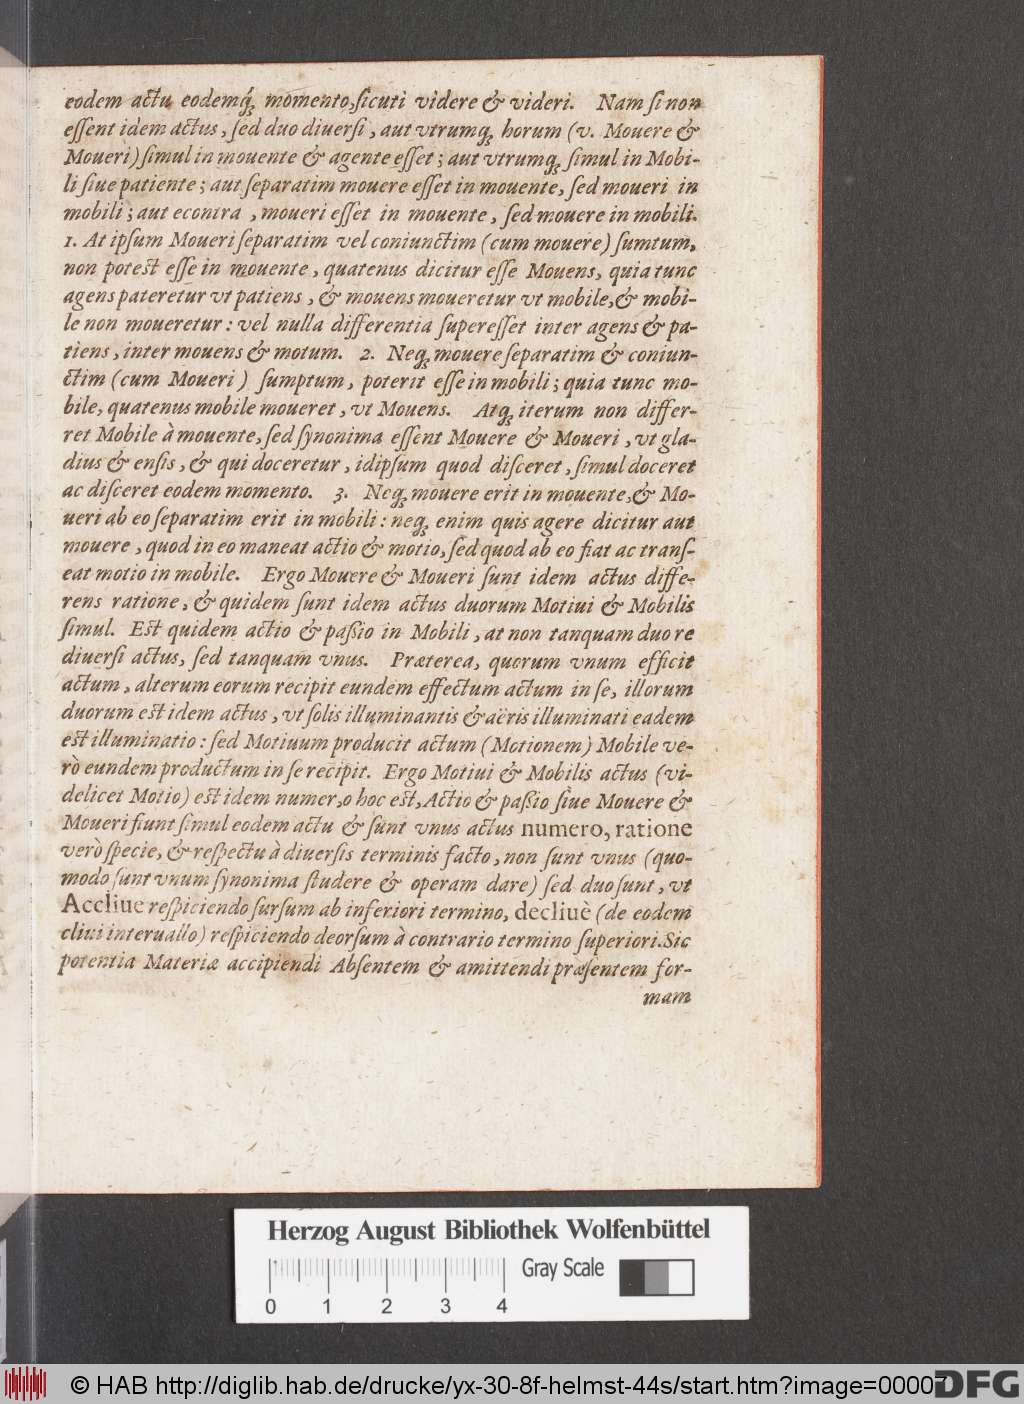 eodem actu eodemq́ꝫ momento, ſicuti videre & videri. Nam ſi non
eſſent idem actus, ſed duo diuerſi, aut vtrumqꝫ horum (v. Mouere &
Moueri) ſimul in mouente & agente eſſet; aut vtrumqꝫ ſimul in Mobi-
li ſiue patiente; aut ſeparatim mouere eſſet in mouente, ſed moueri in
mobili; aut econtra, moueri eſſet in mouente, ſed mouere in mobili.
1. At ipſum Moueri ſeparatim vel coniunctim (cum mouere) ſumtum,
non potest eſſe in mouente, quatenus dicitur eſſe Mouens, quia tunc
agens pateretur vt patiens, & mouens moueretur vt mobile, & mobi-
le non moueretur: vel nulla differentia ſupereſſet inter agens & pa-
tiens, inter mouens & motum. 2. Neqꝫ mouere ſeparatim & coniun-
ctim (cum Moueri) ſumptum, poterit eſſe in mobili; quia tunc mo-
bile, quatenus mobile moueret, vt Mouens. Atqꝫ iterum non differ-
ret Mobile à mouente, ſed ſynonima eſſent Mouere & Moueri, vt gla-
dius & enſis, & qui doceretur, idipſum quod diſceret, ſimul doceret
ac diſceret eodem momento. 3. Neqꝫ mouere erit in mouente, & Mo-
ueri ab eo ſeparatim erit in mobili: neqꝫ enim quis agere dicitur aut
mouere, quod in eo maneat actio & motio, ſed quod ab eo fiat ac tranſ-
eat motio in mobile. Ergo Mouere & Moueri ſunt idem actus diffe-
rens ratione, & quidem ſunt idem actus duorum Motiui & Mobilis
ſimul. Est quidem actio & paſsio in Mobili, at non tanquam duo re
diuerſi actus, ſed tanquam vnus. Præterea, quorum vnum efficit
actum, alterum eorum recipit eundem effectum actum in ſe, illorum
duorum est idem actus, vt ſolis illuminantis & aëris illuminati eadem
est illuminatio: ſed Motiuum producit actum (Motionem) Mobile ve-
rò eundem productum in ſe recipit. Ergo Motiui & Mobilis actus (vi-
delicet Motio) est idem numer,o hoc est, Actio & paſsio ſiue Mouere &
Moueri fiunt ſimul eodem actu & ſunt vnus actus numero, ratione
verò ſpecie, & reſpectu à diuerſis terminis facto, non ſunt vnus (quo-
modo ſunt vnum ſynonima ſtudere & operam dare) ſed duo ſunt, vt
Accliue reſpiciendo ſurſum ab inferiori termino, decliuè (de eodem
cliui interuallo) reſpiciendo deorſum à contrario termino ſuperiori. Sic
potentia Materiæ accipiendi Abſentem & amittendi præſentem for-
mam
Herzog August Bibliothek Wolfenbüttel
Gray Scale
0 1 2 3 4
© HAB http://diglib.hab.de/drucke/yx-30-8f-helmst-44s/start.htm?image=00007
DFG